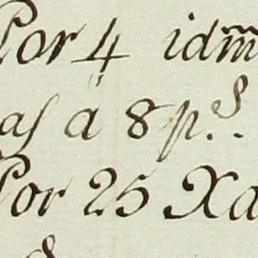 Por 4 idm
as á 8 p.s
Por 25 Xa